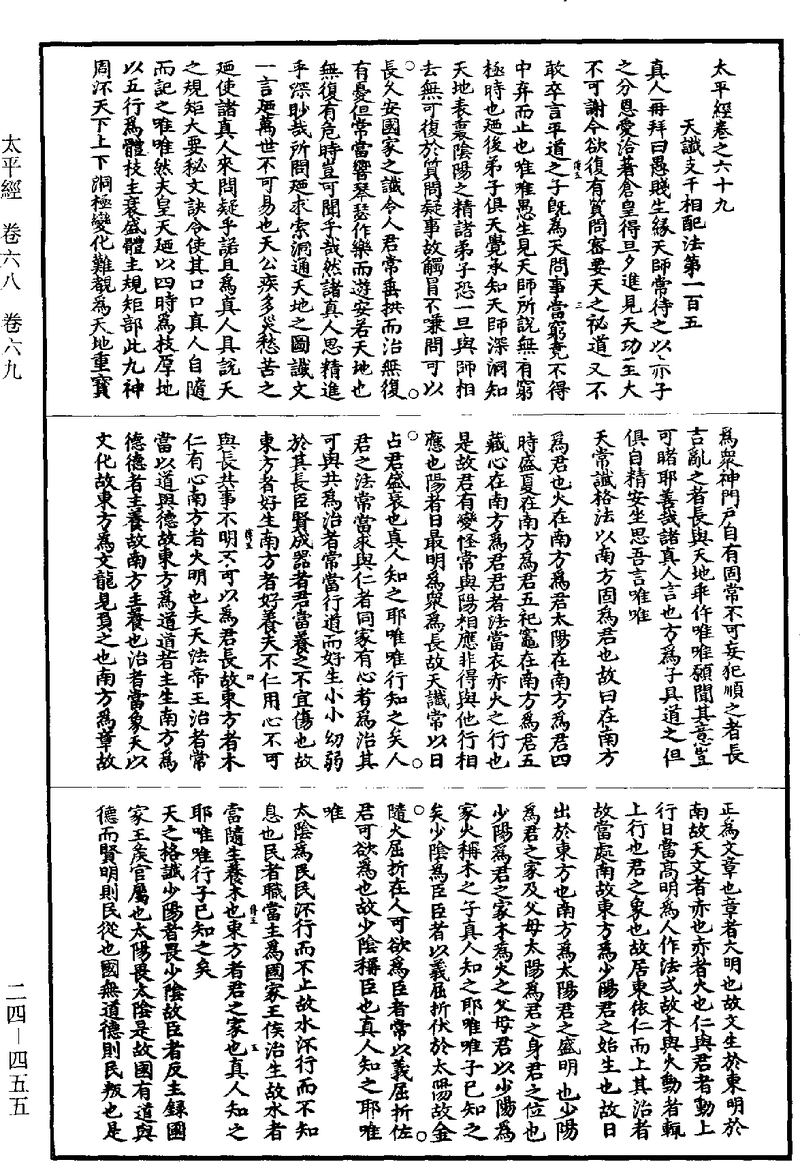 太平經卷之六十九
天讖支干相配法第一百五
真人再拜曰愚賤生緣天師常待之以亦子
之分恩愛洽著倉皇得旦夕進見天功至大
不可謝今欲復有質問密要天之祕道又不
敢卒言平道之子既為天問事當窮竟不得
中弃而止也唯唯愚生見天師所說無有窮
極時也廼後弟子俱天覺承知天師深洞知
天地表裏陰陽之精諸弟子恐一旦與師相
去無可復於質問疑事故觸冒不嫌問可以
長久安國家之讖令人君常垂拱而治無復
有憂但常當響琴瑟作樂而遊安若天地也
無復有危時豈可聞乎哉然諸真人思精進
乎深眇哉所問廼求索洞通天地之圖讖文
一言廼萬世不可易也天公疾多災愁苦之
廼使諸真人來問疑乎諾且為真人具說天
之規矩大要秘文訣令使其口口真人自隨
而記之唯唯然夫皇天廼以四時為枝厚地
以五行為體枝主衰盛體主規矩部此九神
周沠天下上下洞極變化難覩為天地重寶
為眾神門戶自有固常不可妄犯順之者長
吉亂之者長與天地乖仵唯唯願聞其意豈
可睹耶善哉諸真人言也方為子具道之但
俱自精安坐思吾言唯唯
天常讖格法以南方固為君也故曰在南方
為君也火在南方為君太陽在南方為君四
時盛夏在南方為君五祀竈在南方為君五
藏心在南方為君君者法當衣赤火之行也
是故君有變怪常與陽相應非得與他行相
應也陽者日最明為眾為長故天讖常以日
占君盛衰也真人知之耶唯唯行知之矣人
君之法常當求與仁者同家有心者為治其
可與共為治者常當行道而好生小小幼弱
於其長臣賢成器者君當養之不宜傷也故
東方者好生南方者好養夫不仁用心不可
與長共事不明不可以為君長故東方者木
仁有心南方者火明也夫天法帝王治者常
當以道與德故東方為道道者主生南方為
德德者主養故南方主養也治者當象天以
文化故東方為文龍見負之也南方為章故
正為文章也章者大明也故文生於東明於
南故天文者赤也赤者火也仁與君者動上
行日當高明為人作法式故木與火動者輒
上行也君之象也故居東依仁而上其治者
故當處南故東方為少陽君之始生也故日
出於東方也南方為太陽君之盛明也少陽
為君之家及父母太陽為君之身君之位也
少陽為君之家木為火之父母君以少陽為
家火稱木之子真人知之耶唯唯子已知之
矣少陰為臣臣者以義屈折伏於太陽故金
隨火屈折在人可欲為臣者常以義屈折佐
君可欲為也故少陰稱臣也真人知之耶唯
唯
太陰為民民沠行而不止故水沠行而不知
息也民者職當主為國家王侯治生故水者
當隨生養木也東方者君之家也真人知之
耶唯唯行子已知之矣
天之格讖少陽者畏少陰故臣者反主錄國
家王侯官屬也太陽畏太陰是故國有道與
德而賢明則民從也國無道德則民叛也是
太平經　卷六八　卷六九
二四—四五五